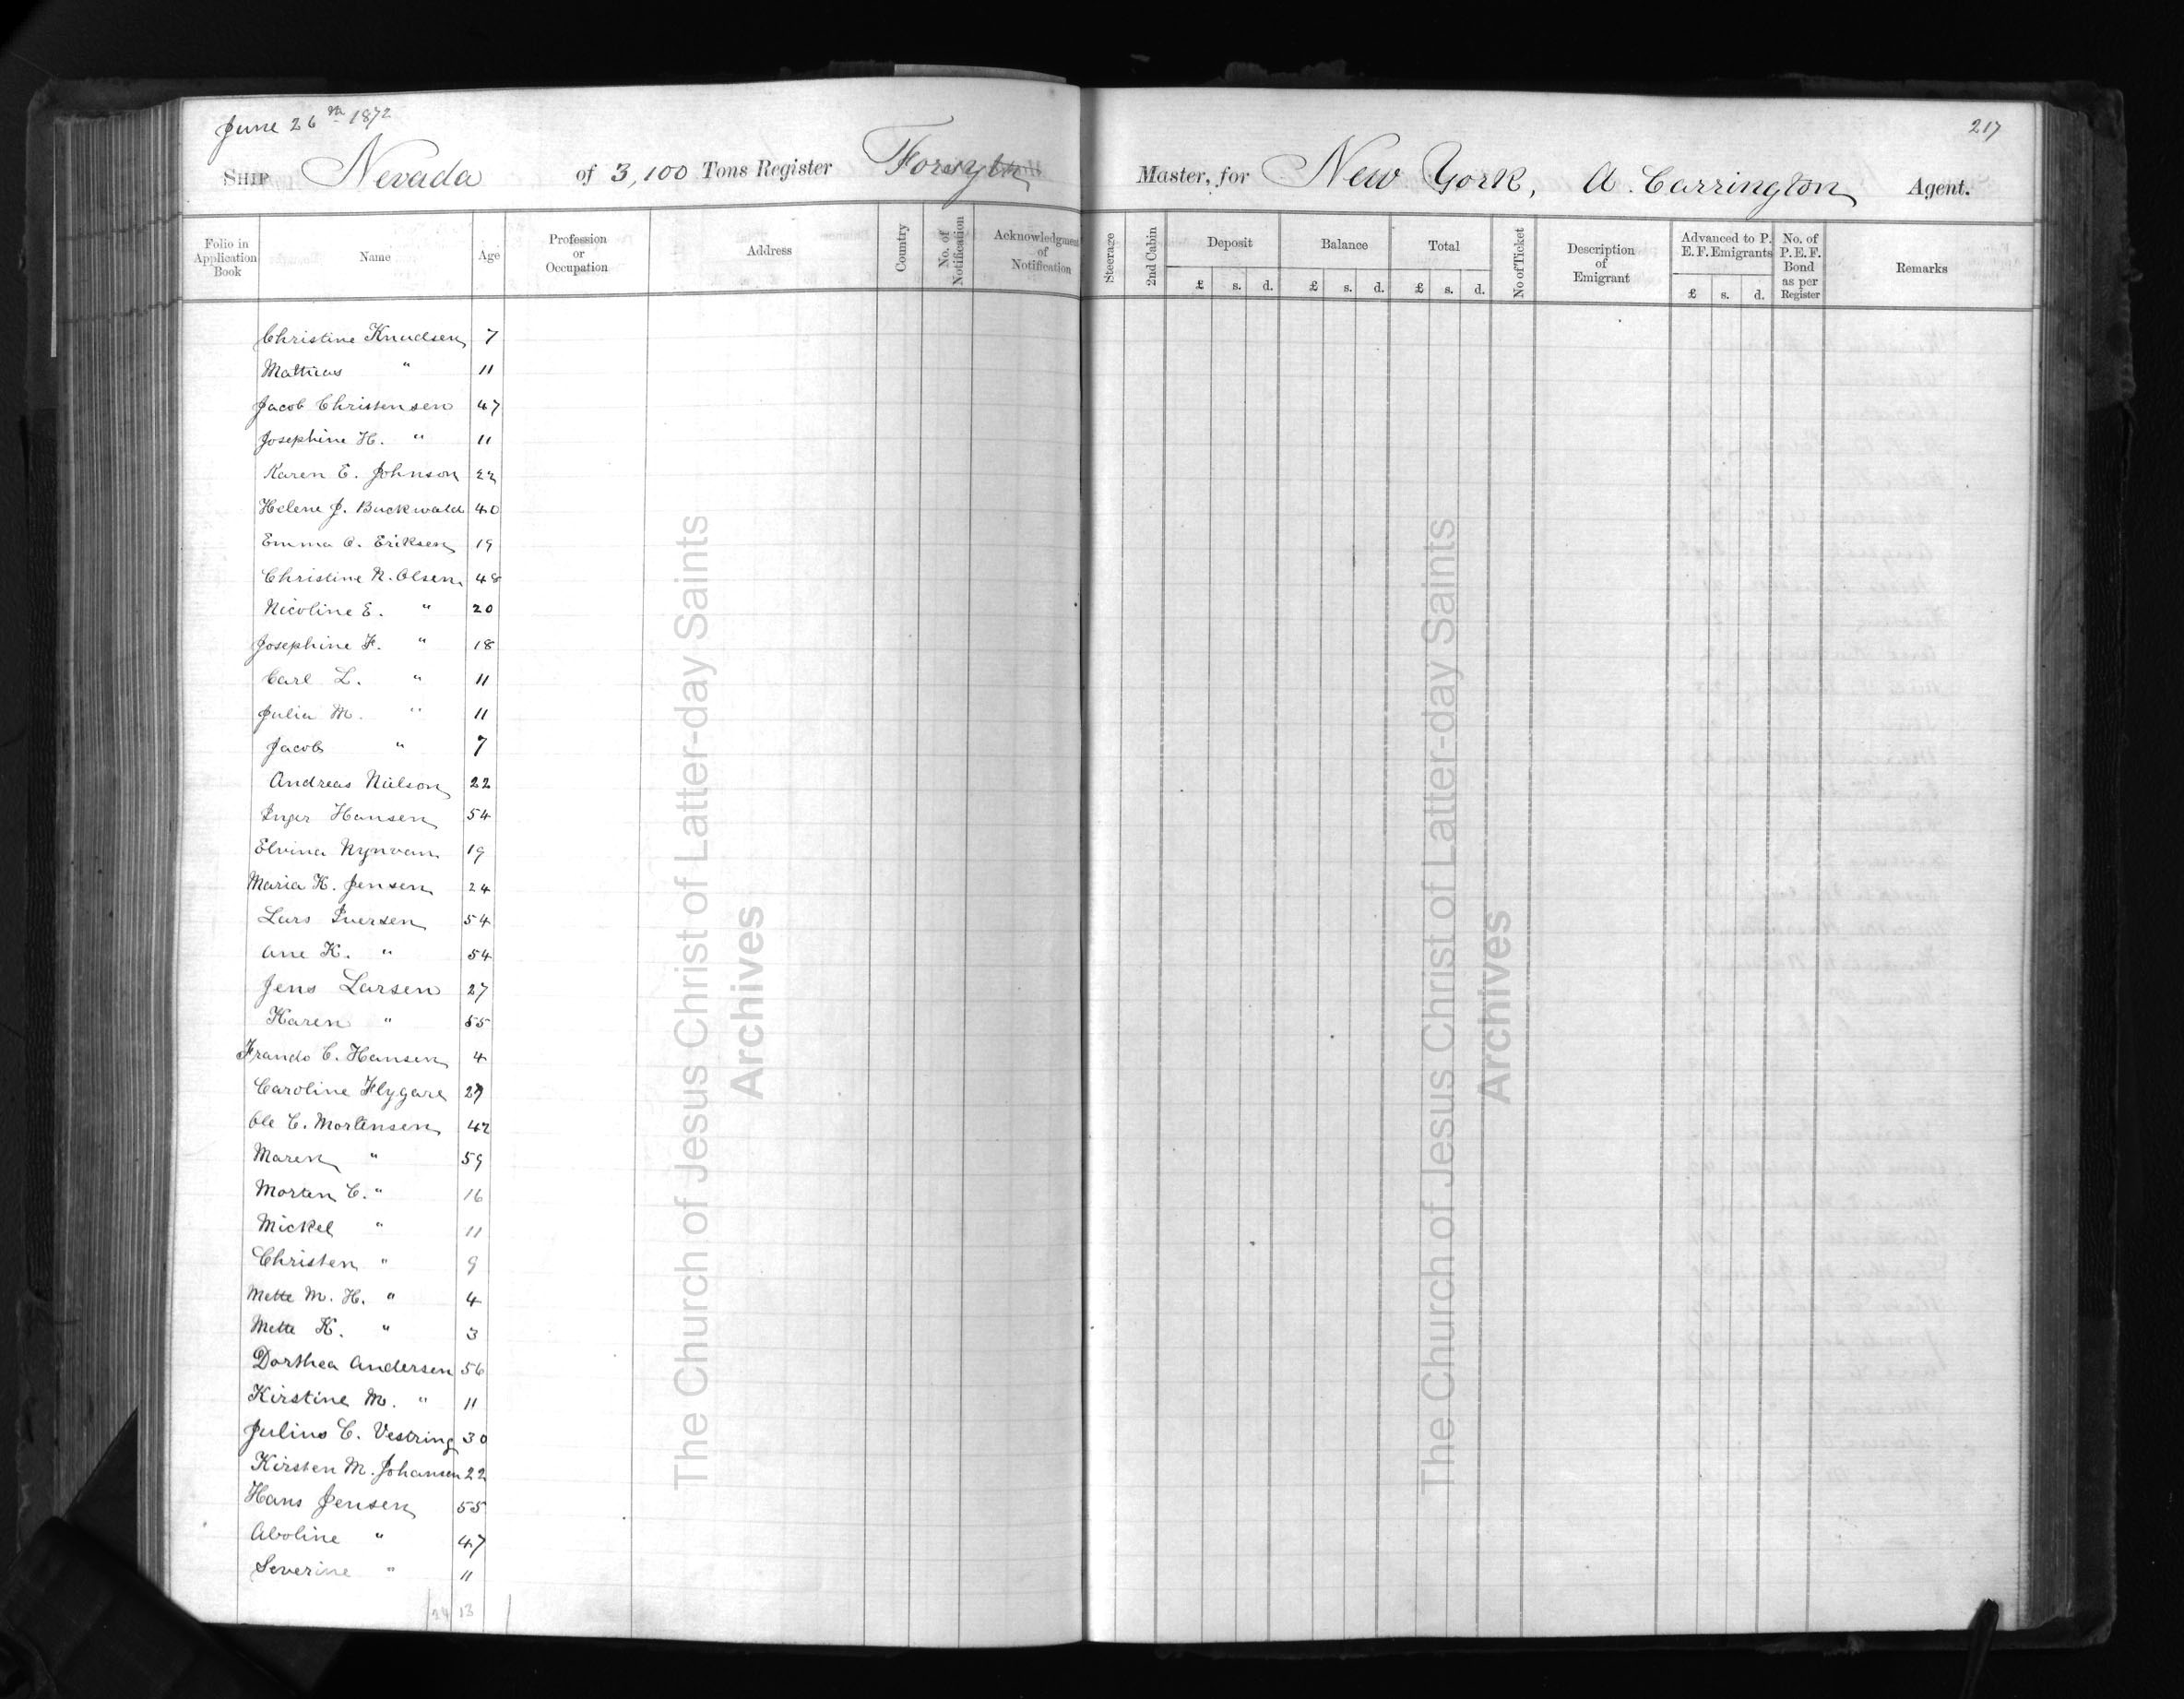 June 26th 1872
217
SHIP Nevada of 3,100 Tons Register Forsyth Master, for New York, A. Carrington Agent.
Folio in Application Book
Name
Age
Profession or Occupation
Address
Country
No. of Notification
Acknowledgment of Notification
Steerage
2nd Cabin
Deposit £ s. d.
Balance £ s. d.
Total £ s. d.
No of Ticket
Description of Emigrant
Advanced to P. E. F. Emigrants £ s. d.
No. of P. E. F. Bond as per Register
Remarks
Christine Knudsen 7
Mathias " 11
Jacob Christensen 47
Josephine H. " 11
Karen E. Johnson 22
Helene J. Buckwald 40
Emma C. Eriksen 19
Christine N. Olsen 48
Nicoline E. " 20
Josephine F. " 18
Carl L. " 11
Julia M. " 11
Jacob " 7
Andreas Nielson 22
Inger Hansen 54
Elvina 19
Maria K. Jensen 24
Lars Iversen 54
Ane K. " 54
Jens Larsen 27
Karen " 55
Frands C. Hansen 4
Caroline Flygare 29
Ole C. Mortensen 42
Maren " 59
Morten C. " 16
Mickel " 11
Christen " 9
Mette M. H. " 4
Mette K. " 3
Dorthea Andersen 56
Kirstine M. " 11
Julius C. Vestring 30
Kirsten M. Johansen 22
Hans Jensen 55
Aboline " 47
Severine " 11
24 13
The Church of Jesus Christ of Latter-day Saints
Archives
The Church of Jesus Christ of Latter-day Saints
Archives